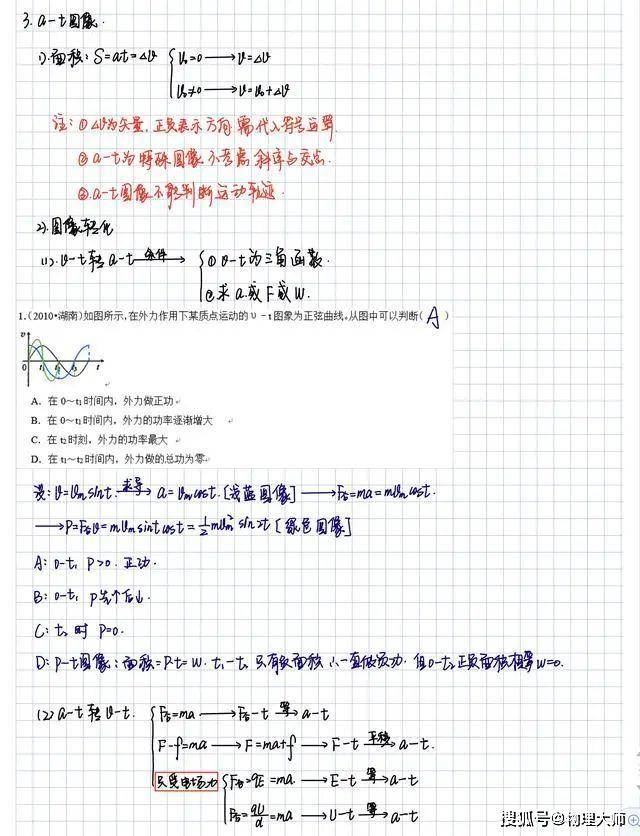 3. a-t图像.
1). 面积: S=at=Δv { v₀=0 → v=Δv
v₀≠0 → v=v₀+Δv
注: ① Δv为矢量, 正负表示方向 需代入符号运算.
② a-t为特殊图像 不考虑 斜率与交点.
③ a-t图像不能判断运动轨迹.
2). 图像转化
(1). v-t转 a-t 条件→ { ① v-t为三角函数.
② 求 a. 或 F 或 W.
1.(2010•湖南)如图所示,在外力作用下某质点运动的υ-t图象为正弦曲线。从图中可以判断( A )
v
0 t₁ t₂ t₃ t
A. 在 0~t₁时间内, 外力做正功
B. 在 0~t₁时间内, 外力的功率逐渐增大
C. 在 t₂时刻, 外力的功率最大
D. 在 t₁~t₃时间内, 外力做的总功为零
设: v=vₘsint 求导→ a=vₘcost. [浅蓝图像] → F合=ma=mvₘcost.
→ P=F合v=mvₘsintcost=½mvₘ²sin2t [绿色图像]
A: 0-t₁ P>0. 正功.
B: 0-t₁ P先个后小.
C: t₂ 时 P=0.
D: P-t图像: 面积=Pt=W. t₁-t₂ 只有负面积 ∴一直做负功. 但0-t₂正负面积相等W=0.
(2) a-t 转 v-t. { F合=ma → F合-t 等→ a-t
F-f=ma → F=ma+f → F-t 平移→ a-t.
只受电场力 { F合=qE=ma → E-t 等→ a-t
F合=qU/d=ma → U-t 等→ a-t
搜狐号@物理大师